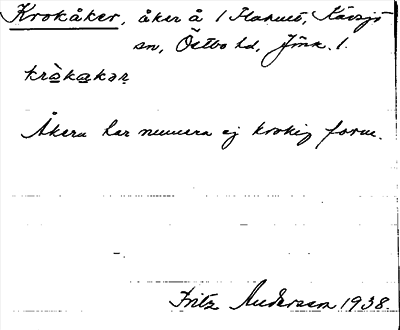 Krokåker, åker å 1 Kävsjö
sn, Östbo hd, Jönk. l.
kròkakər
Åkern har numera ej krokig form.
Fritz Andersson 1938.